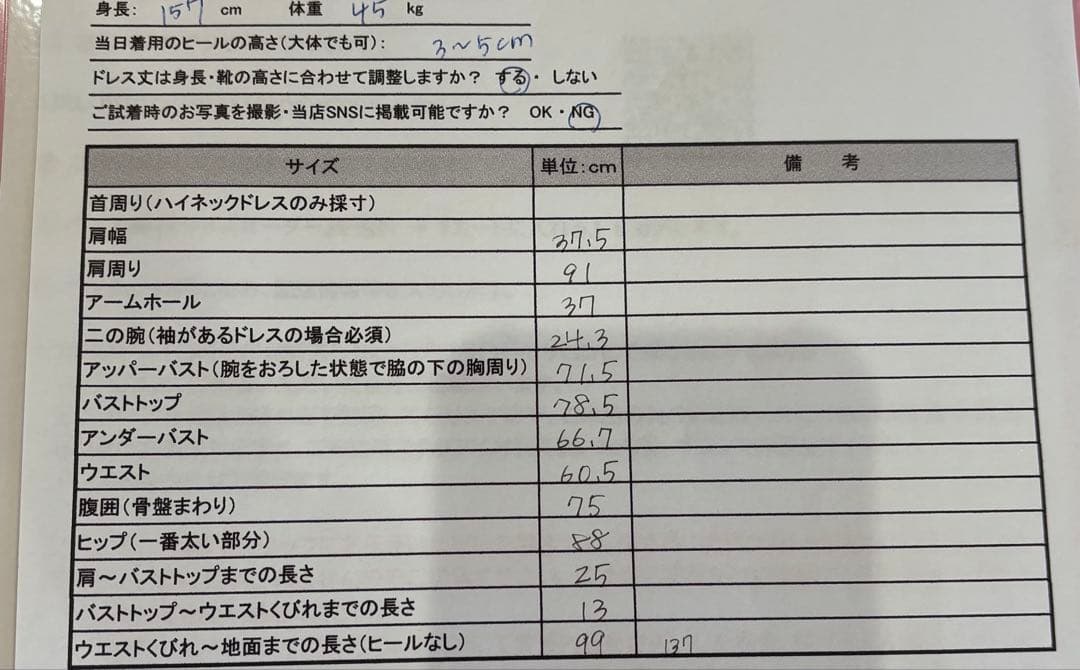 身長: 157 cm 体重 45 kg
当日着用のヒールの高さ(大体でも可): 3~5cm
ドレス丈は身長・靴の高さに合わせて調整しますか? する・しない
ご試着時のお写真を撮影・当店SNSに掲載可能ですか? OK・NG
サイズ 単位:cm 備考
首周り(ハイネックドレスのみ採寸)
肩幅 37.5
肩周り 91
アームホール 37
二の腕(袖があるドレスの場合必須) 24.3
アッパーバスト(腕をおろした状態で脇の下の胸周り) 71.5
バストトップ 78.5
アンダーバスト 66.7
ウエスト 60.5
腹囲(骨盤まわり) 75
ヒップ(一番太い部分) 88
肩~バストトップまでの長さ 25
バストトップ~ウエストくびれまでの長さ 13
ウエストくびれ~地面までの長さ(ヒールなし) 99 137